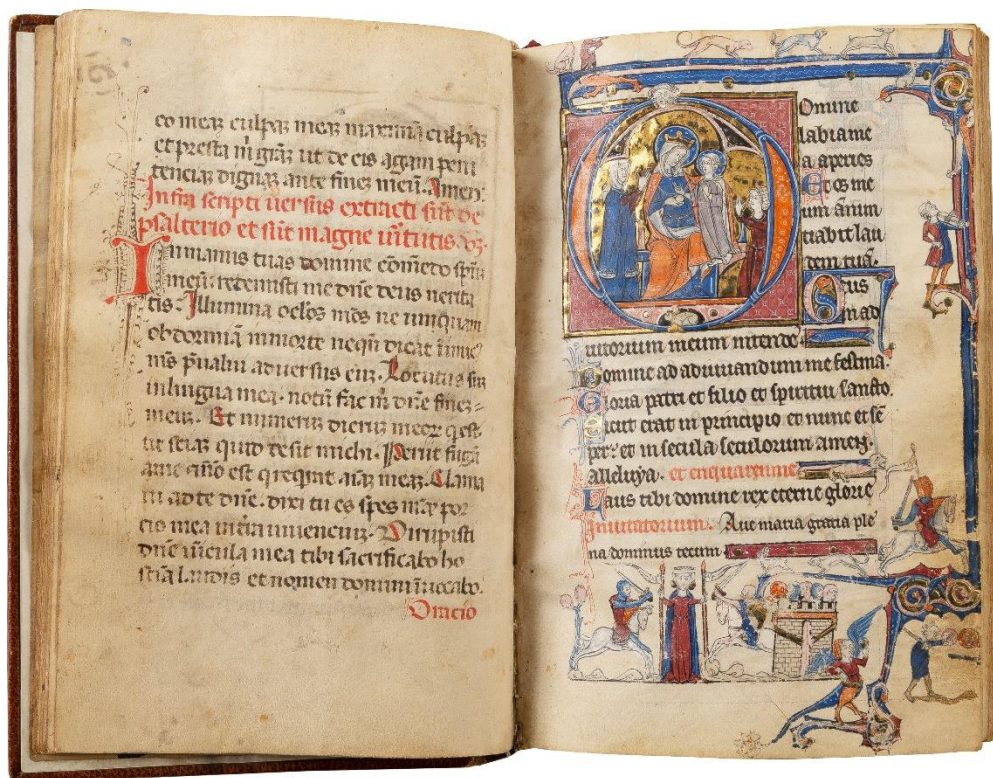 eo meaz culpaz meaz maximā culpaz
et presta m̄ grāz ut de eis agam peni
tenciaz dignaz ante finez meū. Amen.
Infra scripti uersus extracti sūt de
psalterio et sūt magne uītutis. vz.
In manus tuas domine cōmeto spūz
meū. redemisti me dn̄e deus uerita
tis. Illumina oclos meos ne unquam
obdormiaz in morte nequn̄ dicat inimic
meus p̄ualui aduersus euz. Locutus suz
in lingua mea. notū fac m̄ dn̄e finez
meuz. Et numeruz dieruz meor q est
ut sciaz quid desit michi. Periit fuga
a me et nō est q requirat aīaz meaz. Clama
ui ad te dn̄e. dixi tu es spes mea por
cio mea in terra uiuenciuz. Dirupisti
dn̄e uīcula mea tibi sacrificabo ho
stiaz laudis et nomen domini īuocabo.
Oracio
Domine
labia me
a aperies
Et os me
um ānun
tiabit lau
dem tuā.
Deus
in ad
iutorium meum intende
Domine ad adiuuandum me festina.
Gloria patri et filio et spiritui sancto.
Sicut erat in principio et nunc et sē
per. et in secula seculorum amen.
alleluya. et en quarenme
Laus tibi domine rex eterne glorie
Inuitatorium. Aue maria gracia ple
na dominus tecum